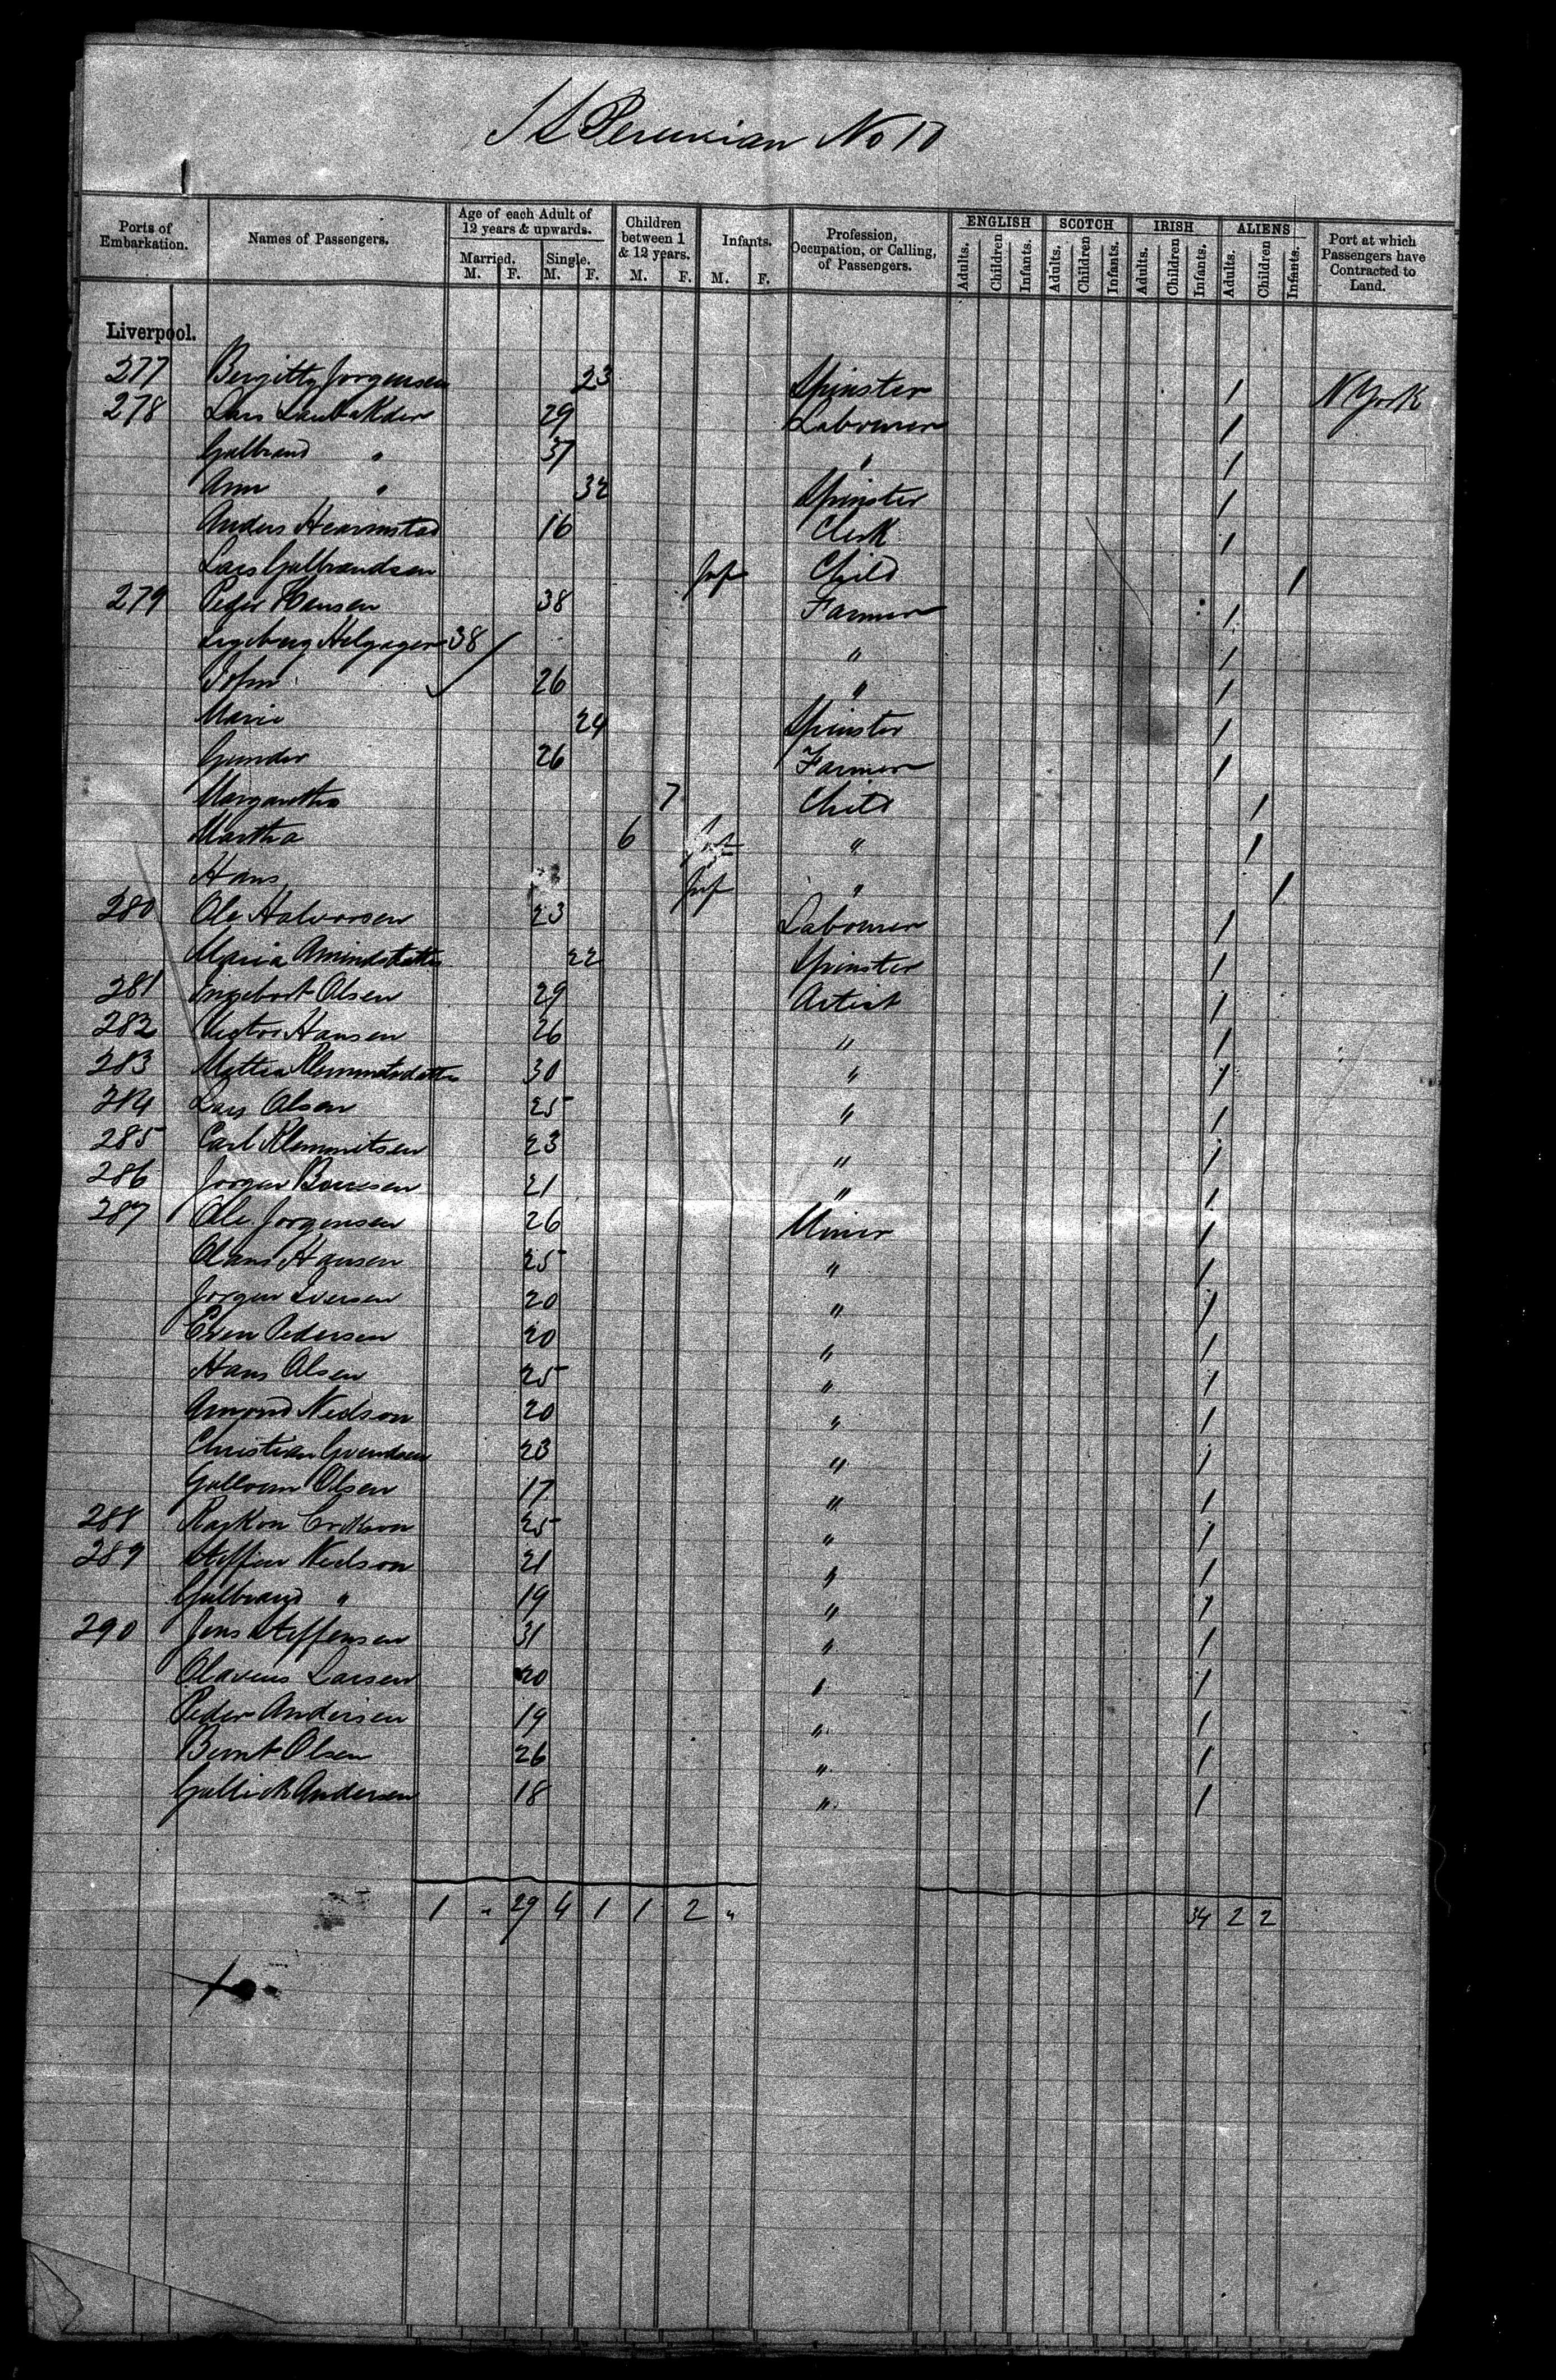 SS Peruvian No 10
Ports of Embarkation. Names of Passengers. Age of each Adult of 12 years & upwards. Children between 1 & 12 years. Infants. Profession, Occupation, or Calling, of Passengers. ENGLISH SCOTCH IRISH ALIENS Port at which Passengers have Contracted to Land.
Married. Single.
M. F. M. F. M. F. M. F. Adults. Children Infants. Adults. Children Infants. Adults. Children Infants. Adults. Children Infants.
Liverpool.
277 Bergitty Jorgensen 23 Spinster 1 N York
278 Lars 29 Labourer 1
Gulbrand " 31 " 1
Ann " 32 Spinster 1
Anders 16 Clerk 1
Lars Gulbrandsen Inf Child 1
279 Peder Hansen 38 Farmer 1
38 " 1
John 26 " 1
Marie 24 Spinster 1
Gunder 26 Farmer 1
7 Child 1
Martha 6 " 1
Hans Inf " 1
280 Ole Halvorsen 23 Labourer 1
Maria 22 Spinster 1
281 Ingebort Olsen 29 Artist 1
282 Hansen 26 " 1
283 30 " 1
284 Lars Olsen 25 " 1
285 Carl Klemmitsen 23 " 1
286 Jorgen 21 " 1
287 Ole Jorgensen 26 Miner 1
Hansen 25 " 1
Jorgen Iversen 20 " 1
Even Pedersen 20 " 1
Hans Olsen 25 " 1
Amond Neilson 20 " 1
Christian 23 " 1
Olsen 17 " 1
288 25 " 1
289 Steffen Neilson 21 " 1
Gulbrand " 19 " 1
290 Jens Steffensen 31 " 1
Olavus Larsen 20 " 1
Peder Andersen 19 " 1
Bernt Olsen 26 " 1
Andersen 18 " 1
1 " 29 4 1 1 2 " 34 2 2